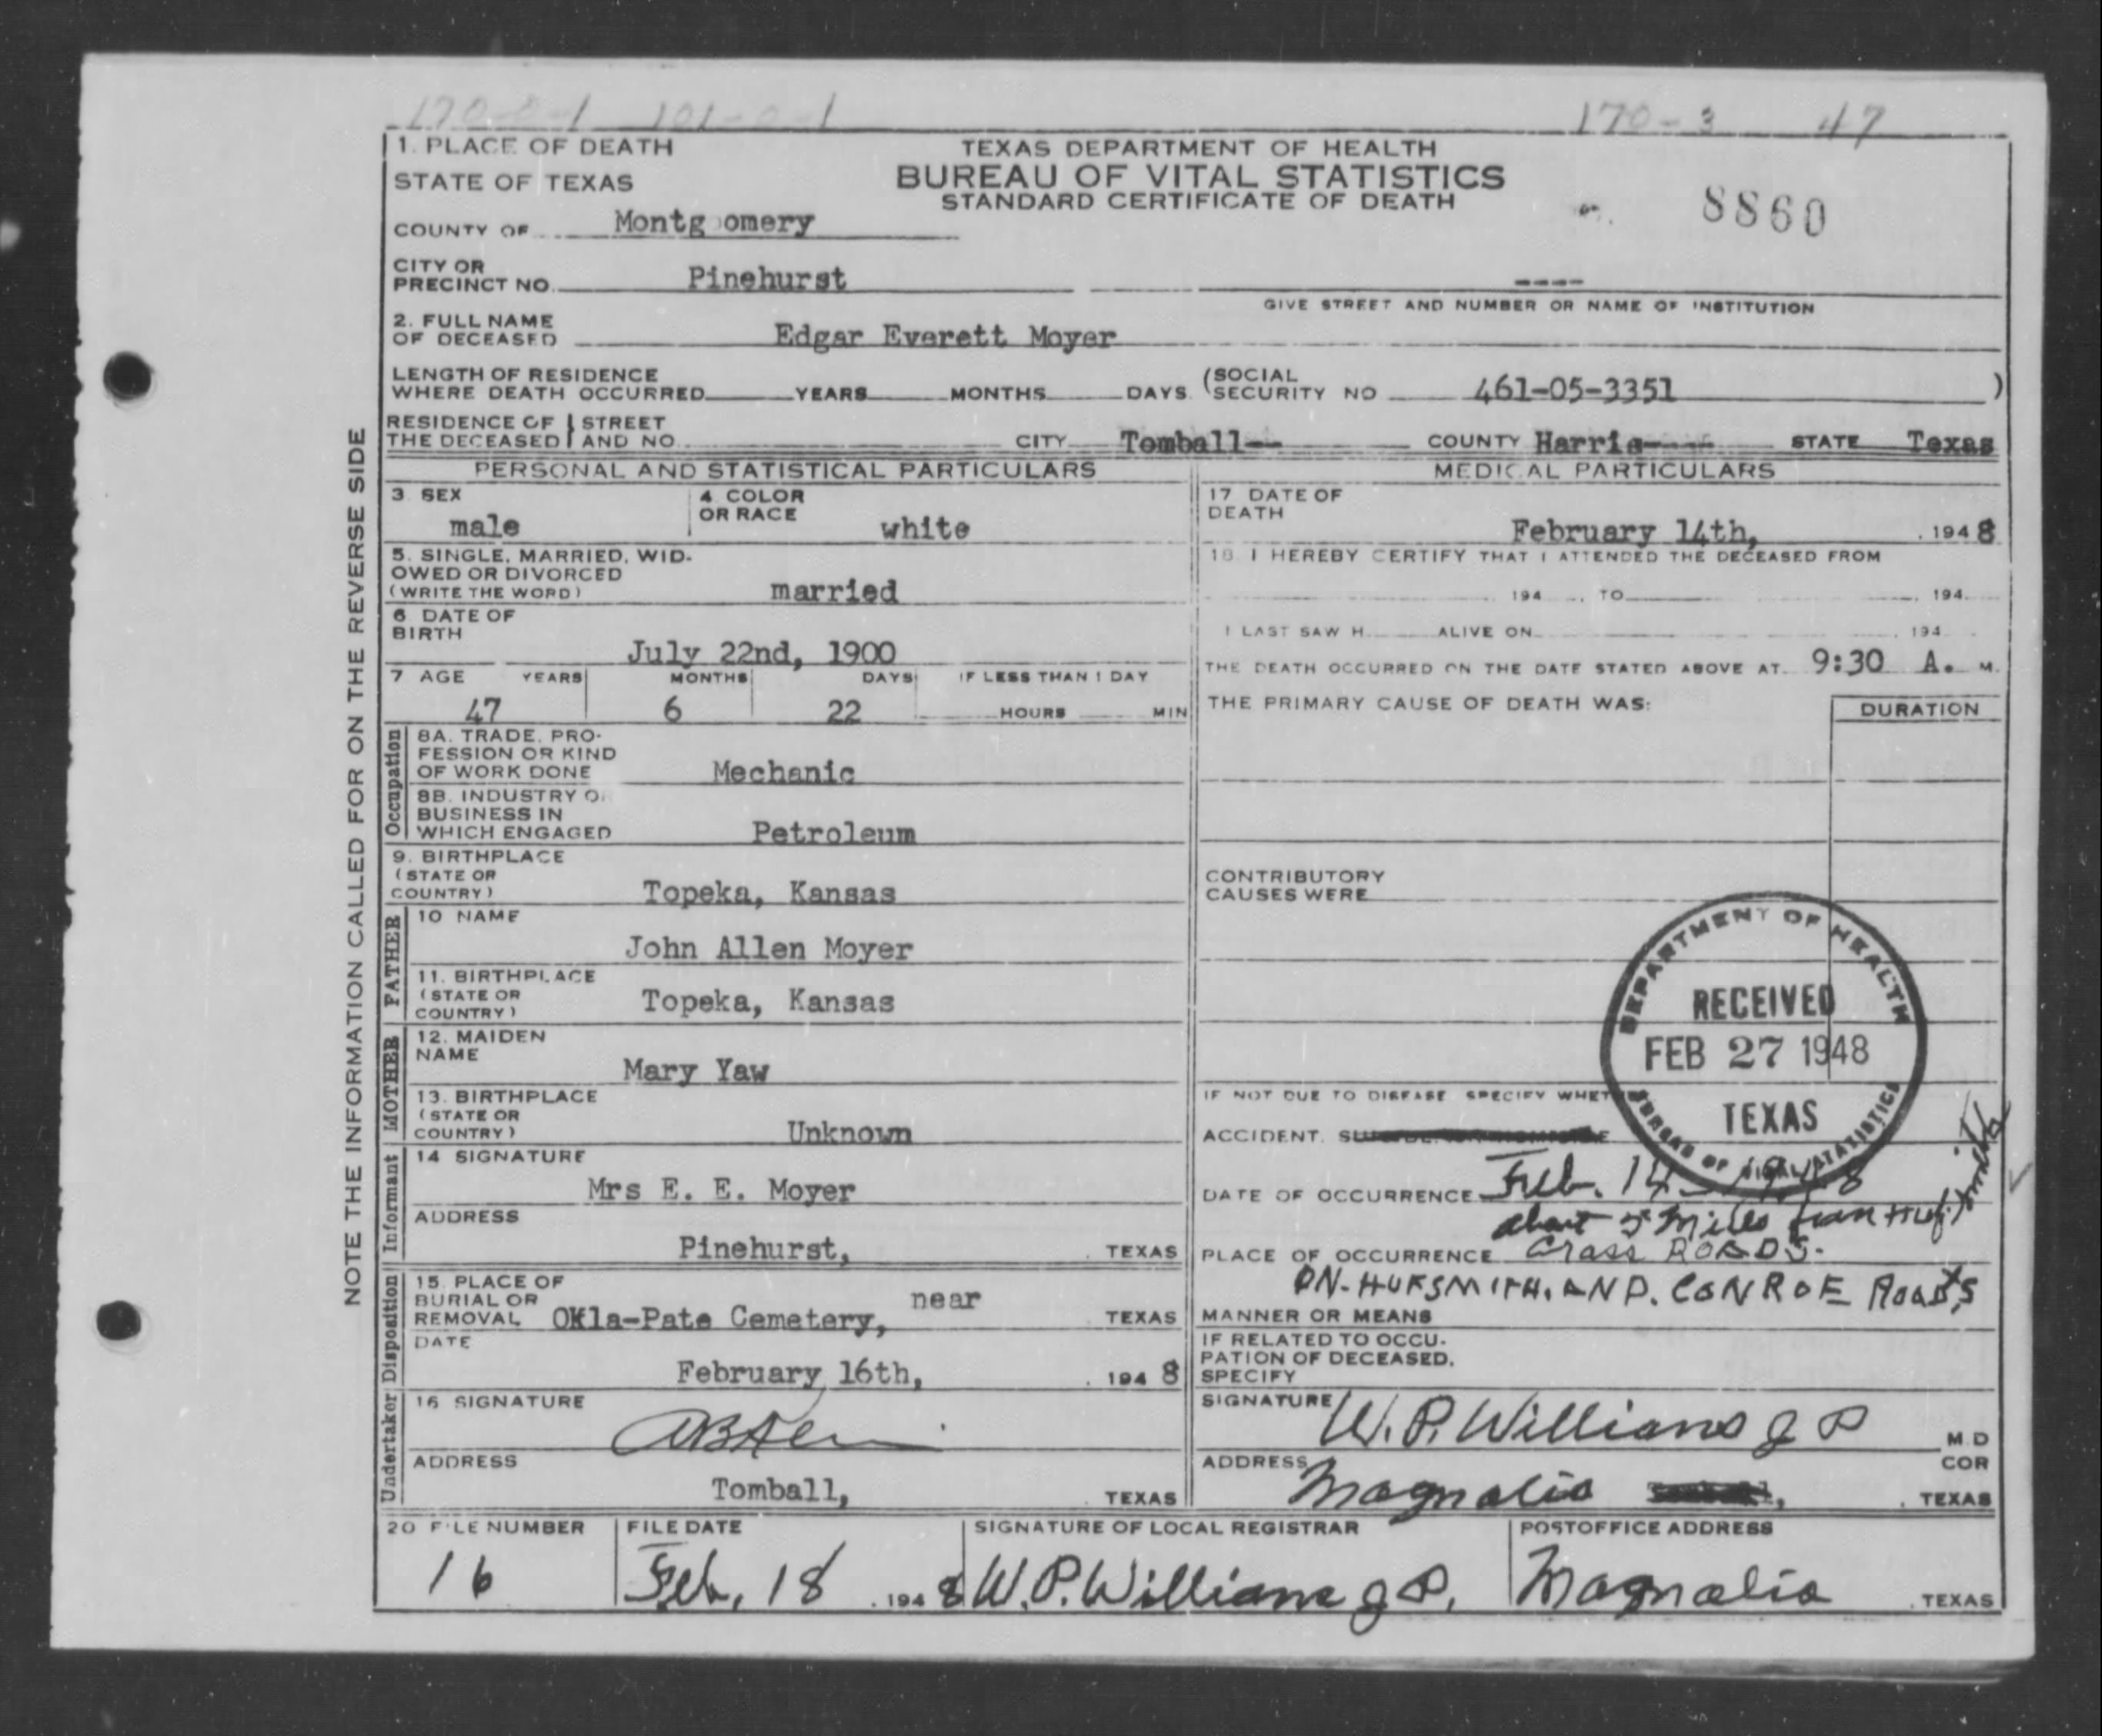 170-8-1 101-0-1 170-3 47
1. PLACE OF DEATH
STATE OF TEXAS
COUNTY OF Montgomery
TEXAS DEPARTMENT OF HEALTH
BUREAU OF VITAL STATISTICS
STANDARD CERTIFICATE OF DEATH
8860
CITY OR
PRECINCT NO. Pinehurst ----
GIVE STREET AND NUMBER OR NAME OF INSTITUTION
2. FULL NAME
OF DECEASED Edgar Everett Moyer
LENGTH OF RESIDENCE
WHERE DEATH OCCURRED YEARS MONTHS DAYS (SOCIAL
SECURITY NO 461-05-3351 )
RESIDENCE OF THE DECEASED STREET AND NO. CITY Tomball-- COUNTY Harris---- STATE Texas
PERSONAL AND STATISTICAL PARTICULARS
3 SEX
male
4 COLOR
OR RACE
white
5. SINGLE, MARRIED, WID-
OWED OR DIVORCED
(WRITE THE WORD) married
6 DATE OF
BIRTH
July 22nd, 1900
7 AGE YEARS MONTHS DAYS IF LESS THAN 1 DAY
47 6 22 HOURS MIN
Occupation
8A. TRADE, PRO-
FESSION OR KIND
OF WORK DONE Mechanic
8B. INDUSTRY OR
BUSINESS IN
WHICH ENGAGED Petroleum
9. BIRTHPLACE
(STATE OR
COUNTRY) Topeka, Kansas
FATHER
10 NAME
John Allen Moyer
11. BIRTHPLACE
(STATE OR
COUNTRY) Topeka, Kansas
MOTHER
12. MAIDEN
NAME
Mary Yaw
13. BIRTHPLACE
(STATE OR
COUNTRY) Unknown
Informant
14 SIGNATURE
Mrs E. E. Moyer
ADDRESS
Pinehurst, TEXAS
Disposition
15. PLACE OF
BURIAL OR
REMOVAL Okla-Pate Cemetery, near TEXAS
DATE
February 16th, 1948
Undertaker
16 SIGNATURE
ADDRESS
Tomball, TEXAS
MEDICAL PARTICULARS
17 DATE OF
DEATH
February 14th, 1948
18 I HEREBY CERTIFY THAT I ATTENDED THE DECEASED FROM
194 , TO , 194
I LAST SAW H ALIVE ON , 194
THE DEATH OCCURRED ON THE DATE STATED ABOVE AT 9:30 A. M.
THE PRIMARY CAUSE OF DEATH WAS: DURATION
CONTRIBUTORY
CAUSES WERE
DEPARTMENT OF HEALTH
RECEIVED
FEB 27 1948
TEXAS
BUREAU OF VITAL STATISTICS
IF NOT DUE TO DISEASE SPECIFY WHET
ACCIDENT,
DATE OF OCCURRENCE Feb. 14-1948
about 5 Miles from Hufsmith
PLACE OF OCCURRENCE Cross ROADS.
ON-HUFSMITH. AND. CONROE Roads
MANNER OR MEANS
IF RELATED TO OCCU-
PATION OF DECEASED,
SPECIFY
SIGNATURE W. P. Williams J P M D
COR
ADDRESS Magnolia , TEXAS
20 FILE NUMBER
16
FILE DATE
Feb, 18 , 1948
SIGNATURE OF LOCAL REGISTRAR
W. P. Williams J P.
POSTOFFICE ADDRESS
Magnolia , TEXAS
NOTE THE INFORMATION CALLED FOR ON THE REVERSE SIDE